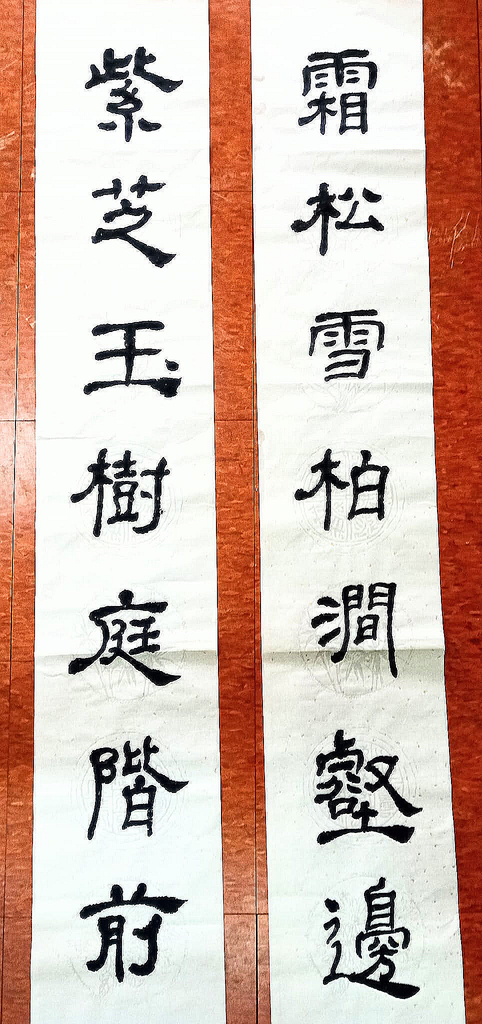 霜松雪柏澗壑邊
紫芝玉樹庭階前